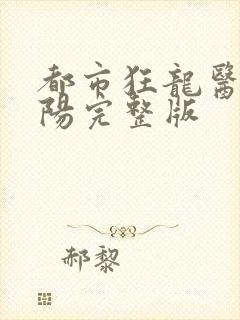 都市狂龍醫
陽完整版
郝黎